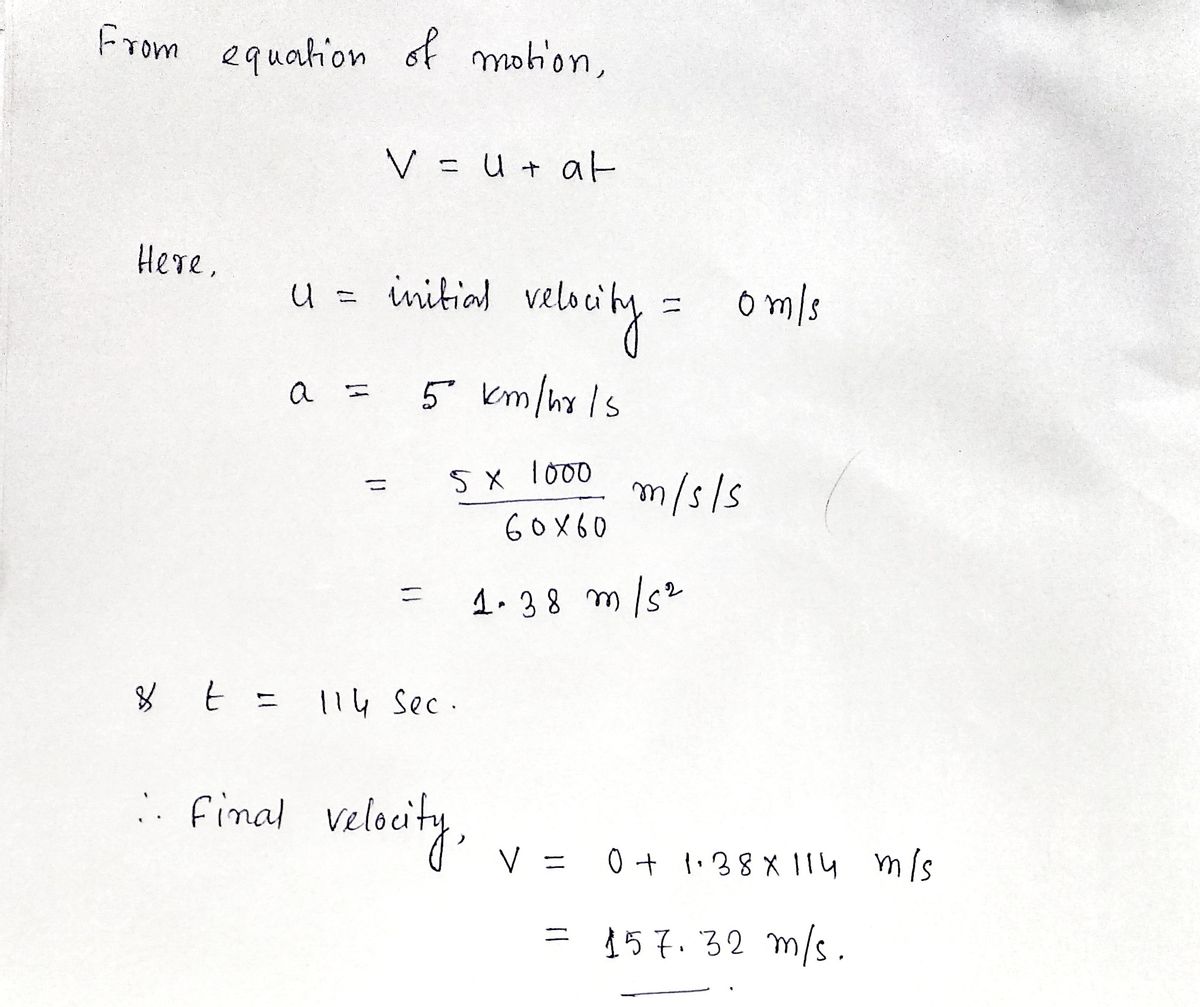 From equation of motion,
V = u + at
Here,
u = initial velocity = 0 m/s
a = 5 km/hr/s
= 5 x 1000 / 60x60 m/s/s
= 1.38 m/s²
& t = 114 sec.
∴ Final velocity,
V = 0 + 1.38 x 114 m/s
= 157.32 m/s.